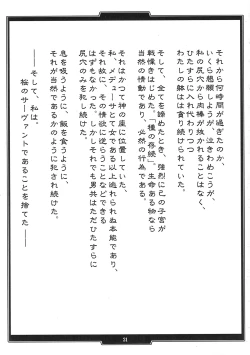 それから何時間が過ぎたのか、
いくら懇願しようが、泣きわめこうが、
私の尻穴から肉棒が抜かれることはなく、
ひたすらに入れ代わりつつ
わたしの躰はは貪り続けられていた。
そして、全てを諦めたとき、強烈に己の子宮が
戦慄きはじめた。「種の存続」。生命ある物なら
当然の情動であり、必然の行為である。
それはかつて神の座に位置していた、
私、メデューサとて女である以上逃れられぬ本能であり、
それ故に、その情欲に逆らうことなどできる
はずもなかった。しかしそれでも男共はただひたすらに
尻穴のみを犯し続けた。
息を吸うように、飯を食うように、
当然であるが、それがかのように犯され続けた。
――そして、私は。
桜のサーヴァントであることを捨てた――
31